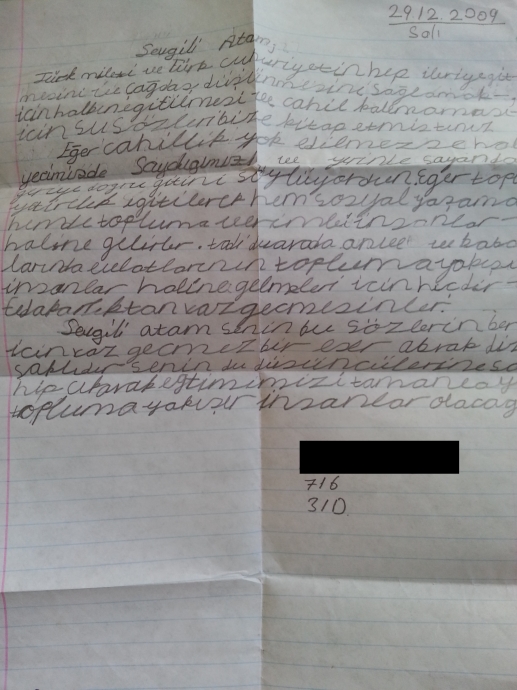 29.12.2009
Salı
Sevgili Atam,
Türk milleti ve Türk cumhuriyetin hep ileriye git
mesini ve çağdaş düşünmesini sağlamak
için halkın eğitilmesi ve cahil kalmaması
için şu sözleri bize kitap etmiştiniz
Eğer cahillik yok edilmezse hal
yerimizde Saydığımızı ve yerinde sayanda
geriye doğru söylüyordun. Eğer topl
hem sosyal yaşama
hemde topluma verimli insanlar
haline gelirler. tabi buarada anne ve baba
larında evlatlarının topluma yakışı
insanlar haline gelmeleri için hiçbir
fedakarlıktan vaz geçmesinler.
Sevgili atam senin bu sözlerin ben
için vaz geçmez bir eser olarak
saklıdır senin bu düşüncülerine sa
hip çıkarak eğtimimizi tamamlay
topluma yakışır insanlar olacağ
716
310